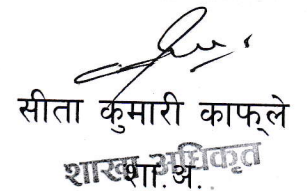 सीता कुमारी काफ्ले
शाखा अधिकृत
शा.अ.